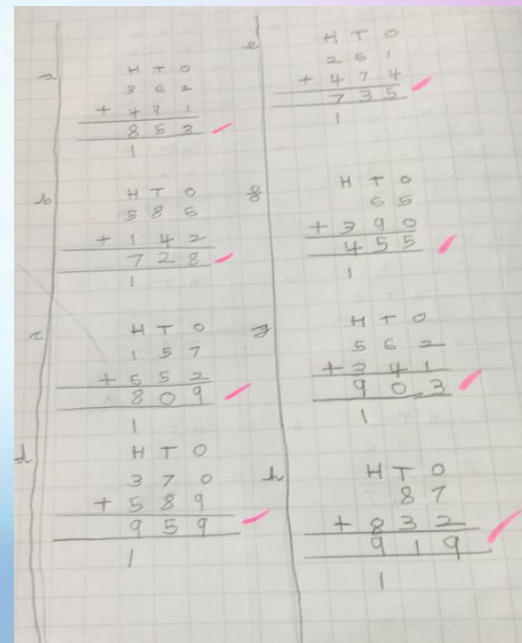 a
H T O
3 6 2
+ 4 9 1
8 5 3
1
b
H T O
5 8 6
+ 1 4 2
7 2 8
1
c
H T O
1 5 7
+ 6 5 2
8 0 9
1
d
H T O
3 7 0
+ 5 8 9
9 5 9
1
e
H T O
2 6 1
+ 4 7 4
7 3 5
1
f
H T O
6 5
+ 3 9 0
4 5 5
1
g
H T O
5 6 2
+ 3 4 1
9 0 3
1
h
H T O
8 7
+ 8 3 2
9 1 9
1